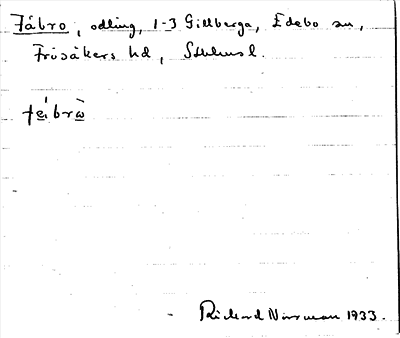 Fábro, odling, 1-3 Gillberga, Edebo sn,
Frösåkers hd, Sthlms l.
Richard Norrman 1933.